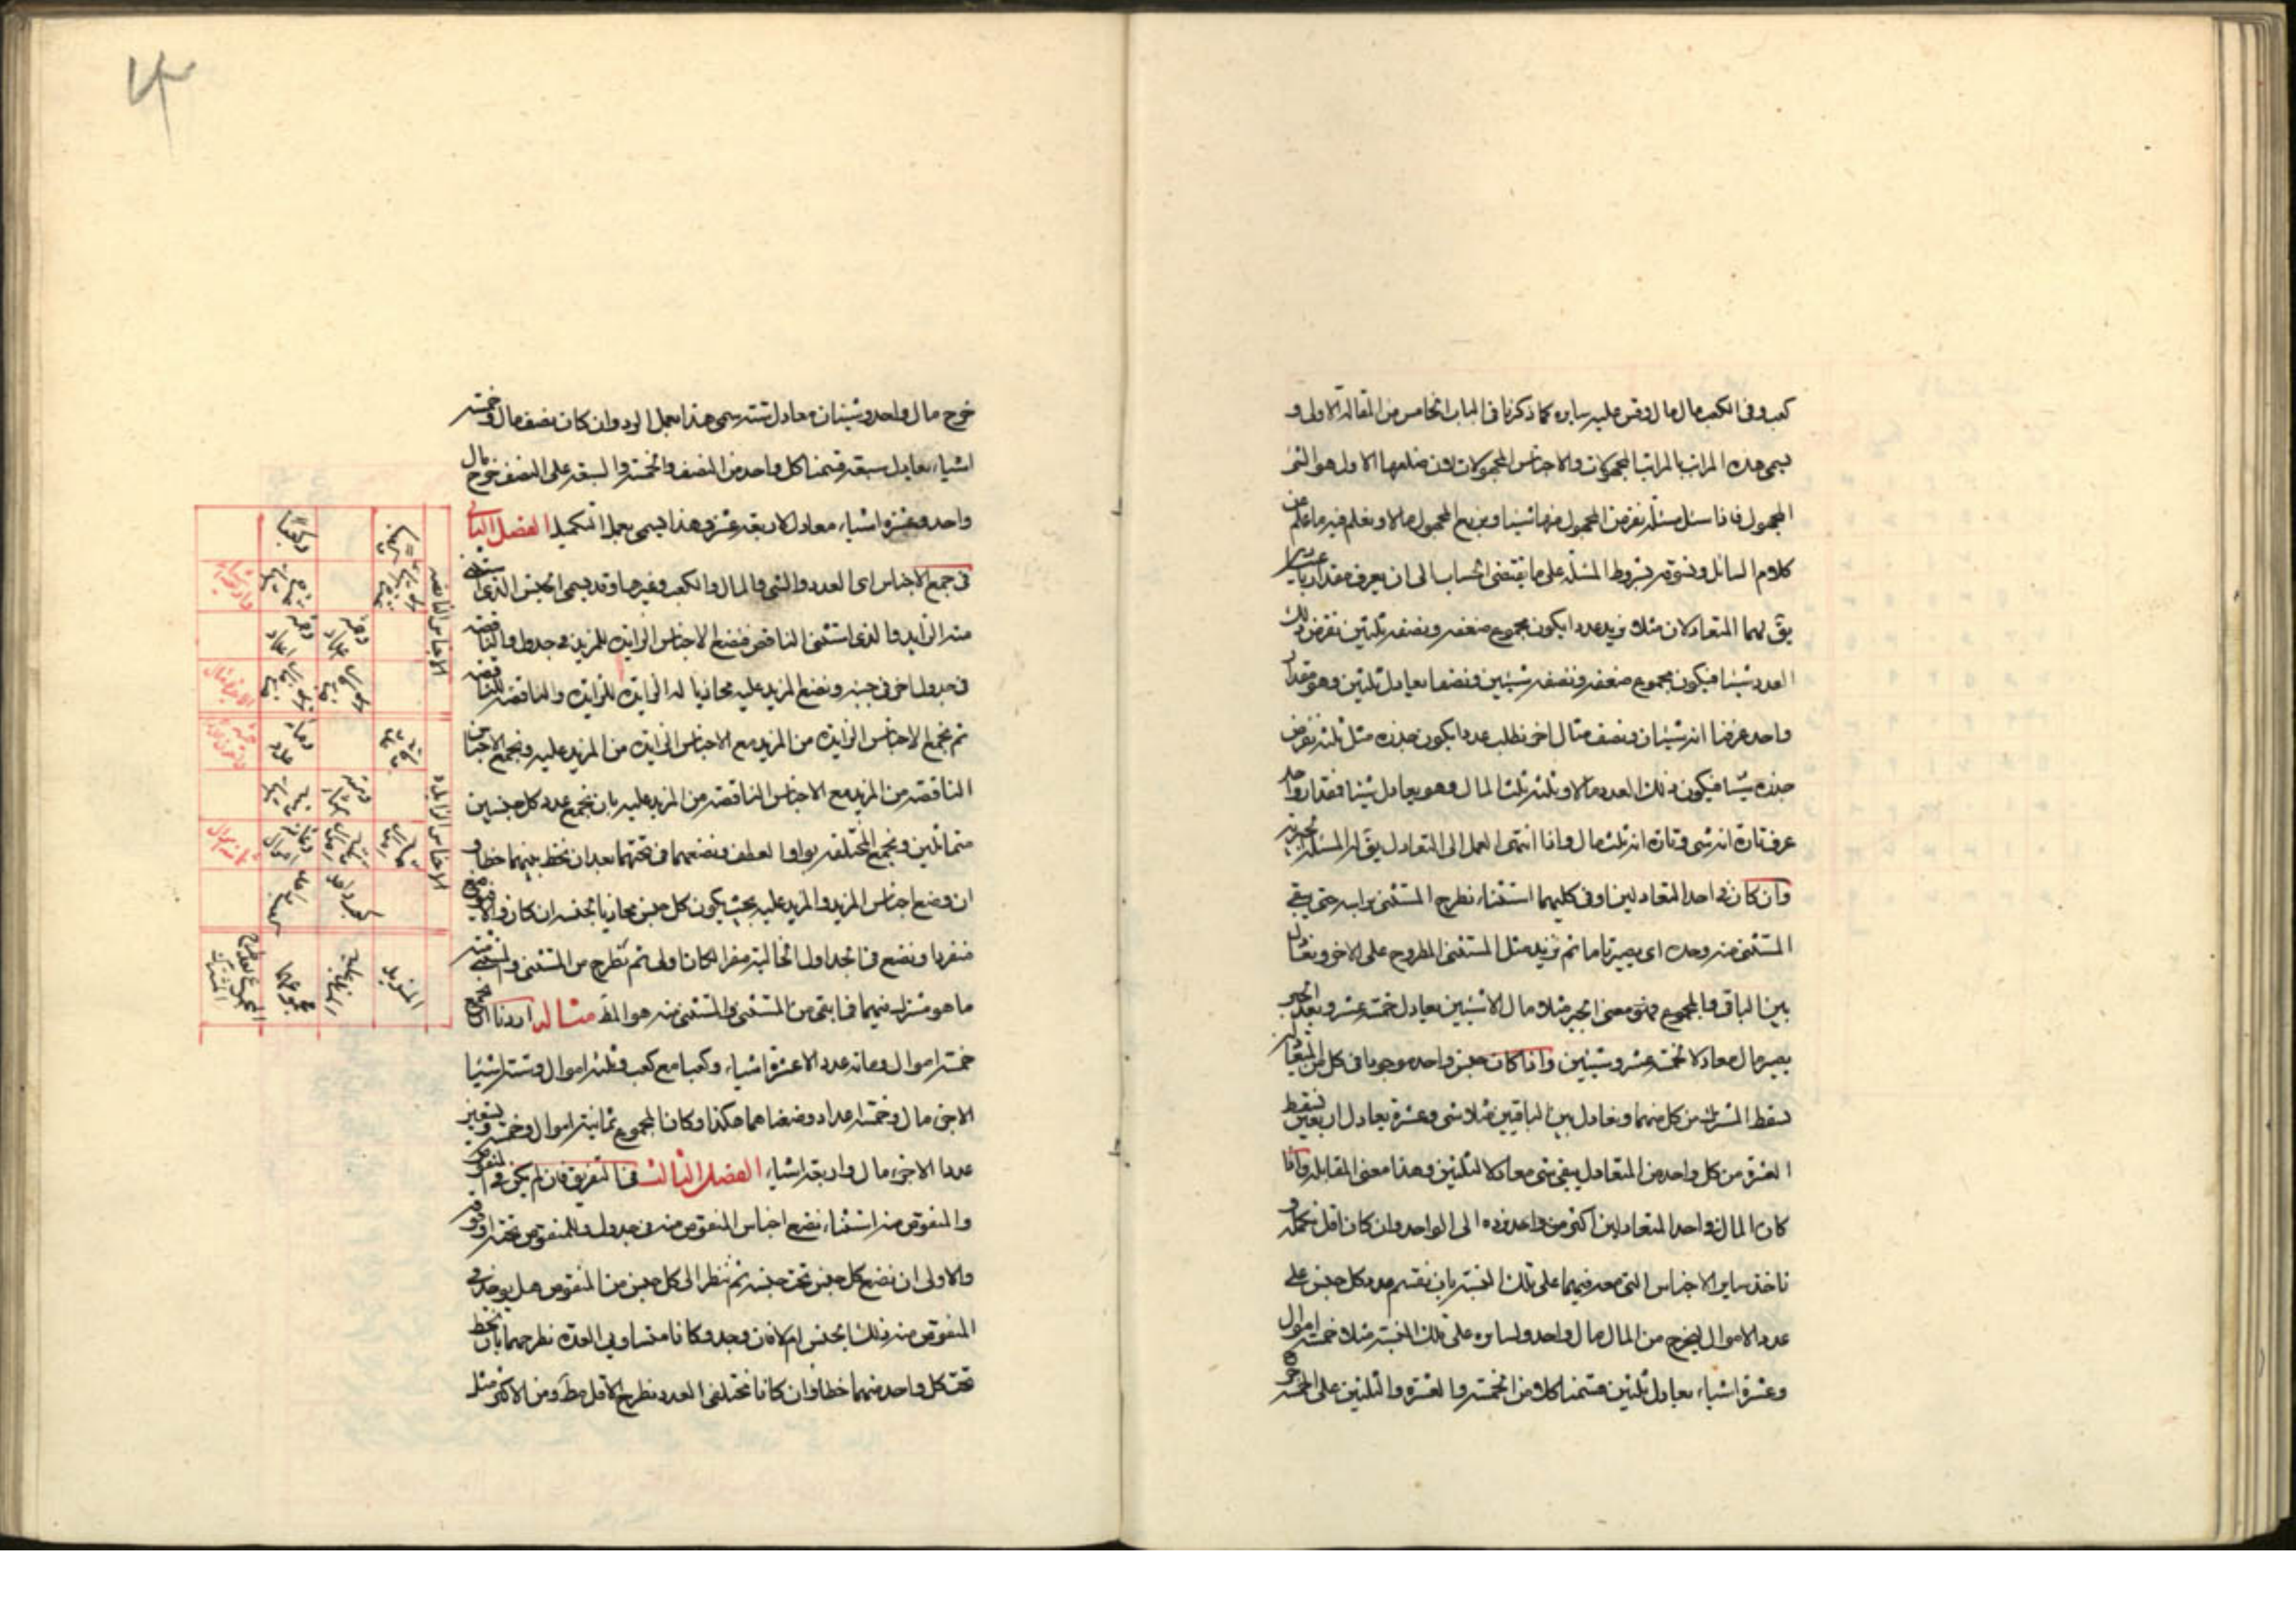 كعب وفى الكعب مال مال وقس عليه سايره كما ذكرنا فى الباب الخامس من المقالة الاولى و
يسمى هذه المراتب المراتب المجهولات والاجناس المجهولات لان ضلعها الاول هو الشئ
المجهول فاذا سئل مسئلة نفرض المجهول منها شيئا ومربع المجهول مالا ونعلم فيه ما علم من
كلام السائل ونسوقه بشروط المسئلة على ما يقتضى الحساب الى ان يعرف مقداريا
يق لهما المتعادلان مثلا نريد عددا يكون مجموع ضعفه ونصفه ثلثين نفرض ذلك
العدد شيئا فيكون مجموع ضعفه ونصفه شيئين ونصفا يعادل ثلثين وهو مقدار
واحد عرفنا انه شيئان ونصف مثال اخر نطلب عددا يكون جذره مثل ثلثه نفرض
جذره شيئا فيكون ذلك العدد مالا وثلثه ثلث المال وهو يعادل شيئا فمقدار واحد
عرف تارة انه شى وتارة انه ثلث مال واذا انتهى العمل الى التعادل يق ان المسئلة
وان كان فى احد المتعادلين او فى كليهما استثناء نطرح المستثنى براسه حتى يبقى
المستثنى منه وحده اى يصير تاما ثم نزيد مثل المستثنى المطروح على الاخر ونعادل
بين الباقى والمجموع وهو معنى الجبر مثلا مال الا شيئين يعادل خمسة عشر وبعد الجبر
يصير مال معادلا لخمسة عشر وشيئين واذا كان جنس واحد موجودا فى كل من المتعادلين
نسقط المشترك من كل منهما ونعادل بين الباقيين مثلا شى وعشرة يعادل اربعين نسقط
العشرة من كل واحد من المتعادل يبقى شى معادلا لثلثين وهذا معنى المقابلة واذا
كان المال فى احد المتعادلين اكثر من واحد نرده الى الواحد وان كان اقل نكمله و
ناخذ ساير الاجناس التى معه فيهما على تلك النسبة بان نقسم عدد كل جنس على
عدد الاموال ليخرج من المال مال واحد ولسايره على تلك النسبة مثلا خمسة اموال
وعشرة اشياء يعادل ثلثين قسمنا كلا من الخمسة والعشرة والثلثين على الخمسة
خرج مال واحد وشيئان معادل ستة يسمى هذا بعمل الرد وان كان نصف مال وخمسة
اشياء يعادل سبعة قسمنا كل واحد من النصف والخمسة والسبعة على النصف خرج مال
واحد وعشرة اشياء معادلا لاربعة عشر وهذا يسمى بعمل التكميل الفصل الثانى
فى جمع الاجناس اى العدد والشى والمال والكعب وغيرها وقد يسمى الجنس الذى استثنى
منه الزايد والذى استثنى الناقص فنضع الاجناس الزايدة للمزيد فى جدول والناقصة
فى جدول اخر فى جنبه ونضع المزيد عليه محاذيا له الزايدة للزايدة والناقصة للناقصة
ثم نجمع الاجناس الزايدة من المزيد مع الاجناس الزايدة من المزيد عليه ونجمع الاجناس
الناقصة من المزيد مع الاجناس الناقصة من المزيد عليه بان نجمع عدد كل جنسين
متماثلين ونجمع المختلفة بواو العطف ونضعهما فى تحتهما بعد ان نخط بينهما خطا و
ان وضع اجناس المزيد والمزيد عليه بحيث يكون كل جنس محاذيا لجنسه ان كان والا
منفردا ونضع فى الجداول الخالية صفرا لكان اولى ثم نطرح من المستثنى والمستثنى منه
ما هو مشترك فيهما فما بقى من المستثنى والمستثنى منه هو المط مثاله اردنا ان نجمع
خمسة اموال ومائة عدد الا عشرة اشياء وكعبا مع كعب وثلثة اموال وستة اشيا
الا جزء مال وخمسة اعداد وضعناهما هكذا وكان المجموع ثمانية اموال وخمسة وتسعين
عددا الا جزء مال واربعة اشياء الفصل الثالث فى التفريق فان لم يكن فى المنقوص
والمنقوص منه استثناء نضع اجناس المنقوص منه فى جدول والمنقوص تحته او فوقه
والاولى ان نضع كل جنس تحت جنسه ثم ننظر الى كل جنس من المنقوص هل يوجد فى
المنقوص منه ذلك الجنس ام لا فان وجد وكانا متساويى العدة نطرحهما بان نخط
تحت كل واحد منهما خطا وان كانا مختلفى العدد نطرح الاقل مط ومن الاكثر مثل
الاجناس الناقصة
الاجناس الزايدة
المزيد
المزيد عليه
مجموعهما